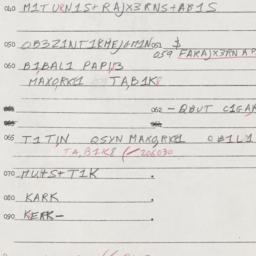 040 M1TURN1S+RAJX3RNS+AB1S
050 OB3Z1NT1RHEJGM1N 051 $
059 FARAJX3RN AP
060 B1BAL1 PAP13
MAXQRKE1 TAB1K8
062 - QBUT C1GAR
065 T1T1N QSYN MAXQRKE1 OB1L1
TAB1K8 206030
070 MUHS+T1K .
080 KARK .
090 KERK- .